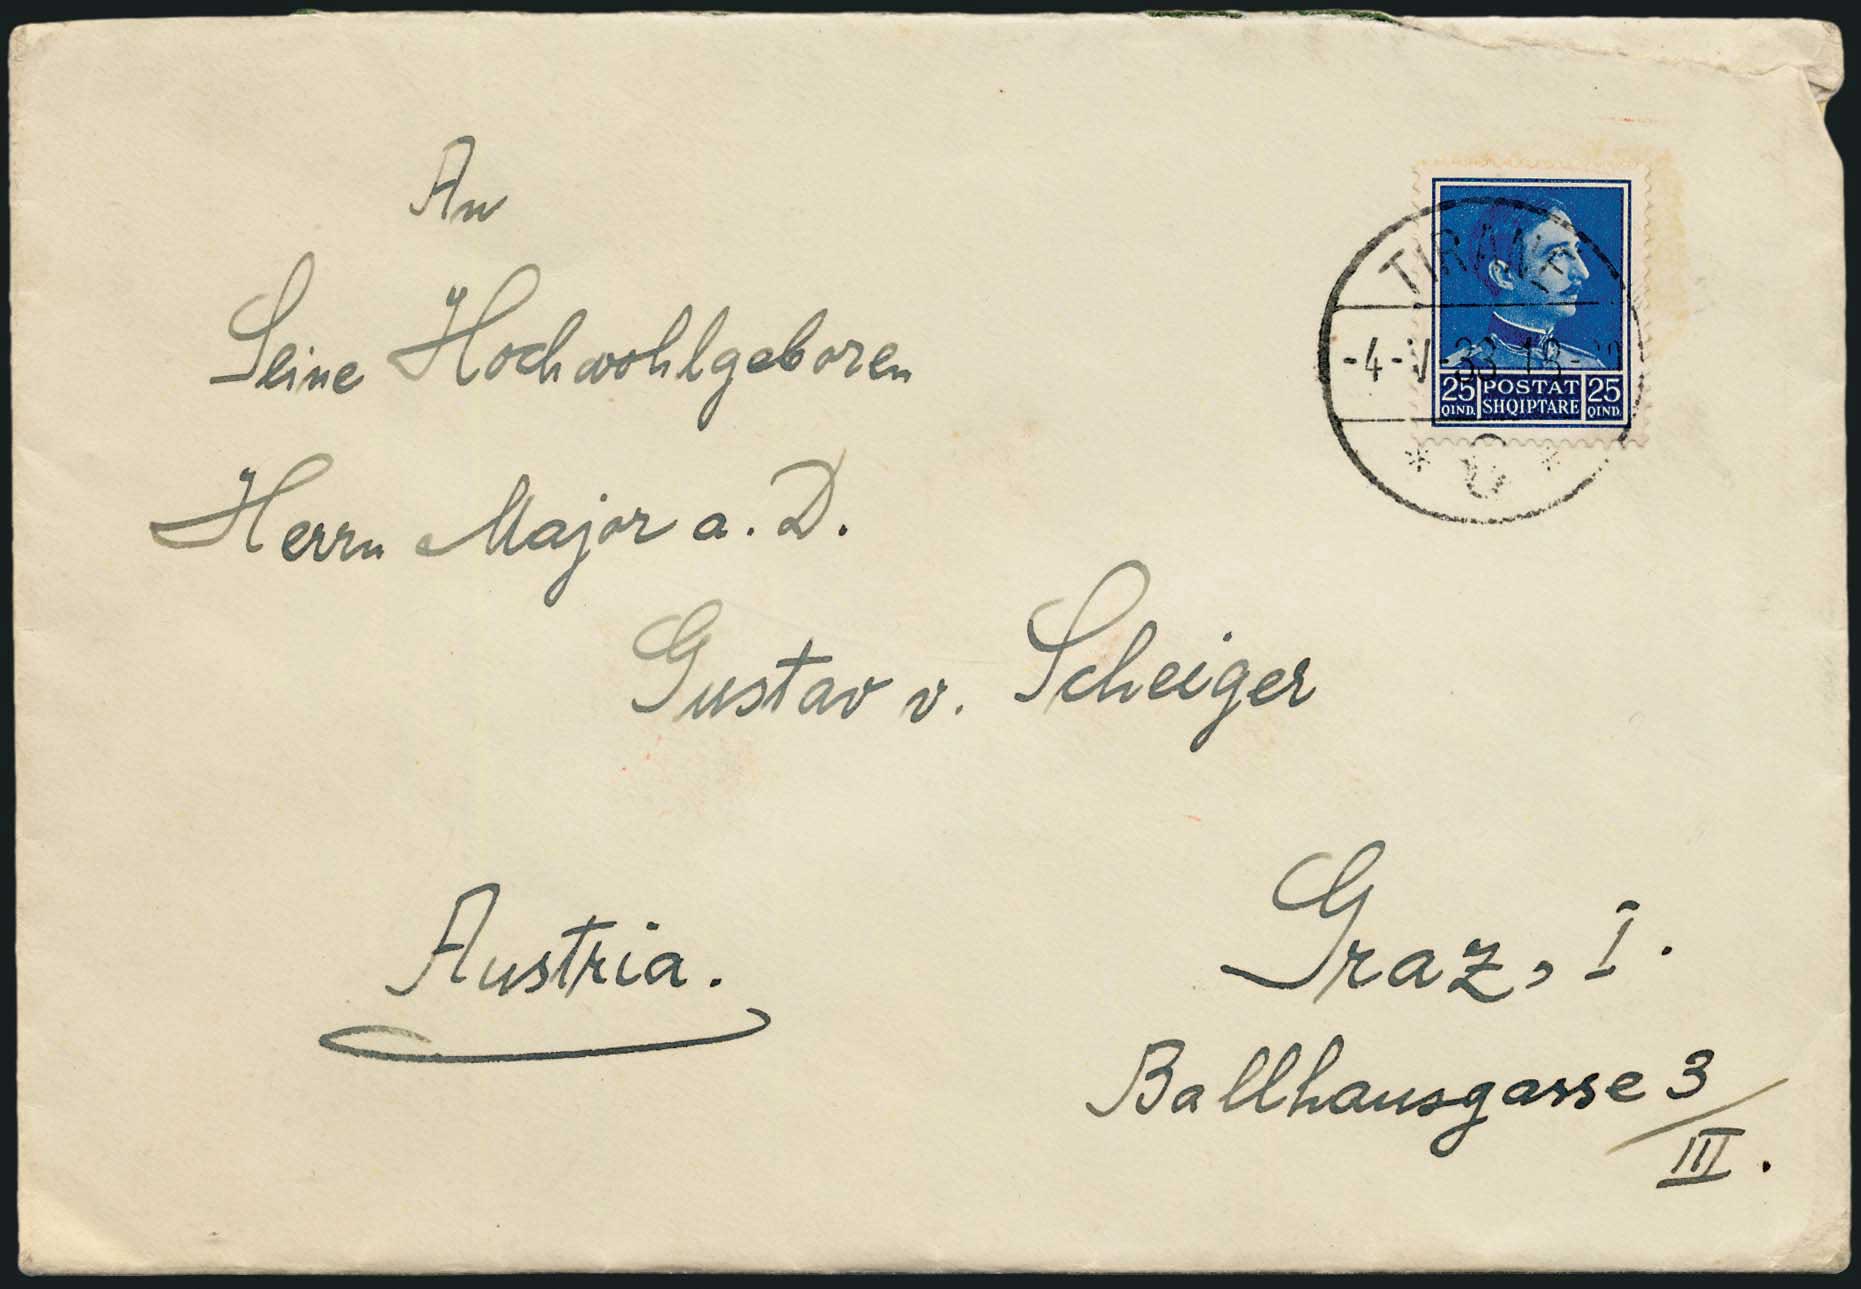 An
Seine Hochwohlgeboren
Herrn Major a. D.
Gustav v. Scheiger
Austria.
Graz, I.
Ballhausgasse 3/III.
TIRANË
-4-V-33 18-
25 QIND. POSTAT SHQIPTARE 25 QIND.